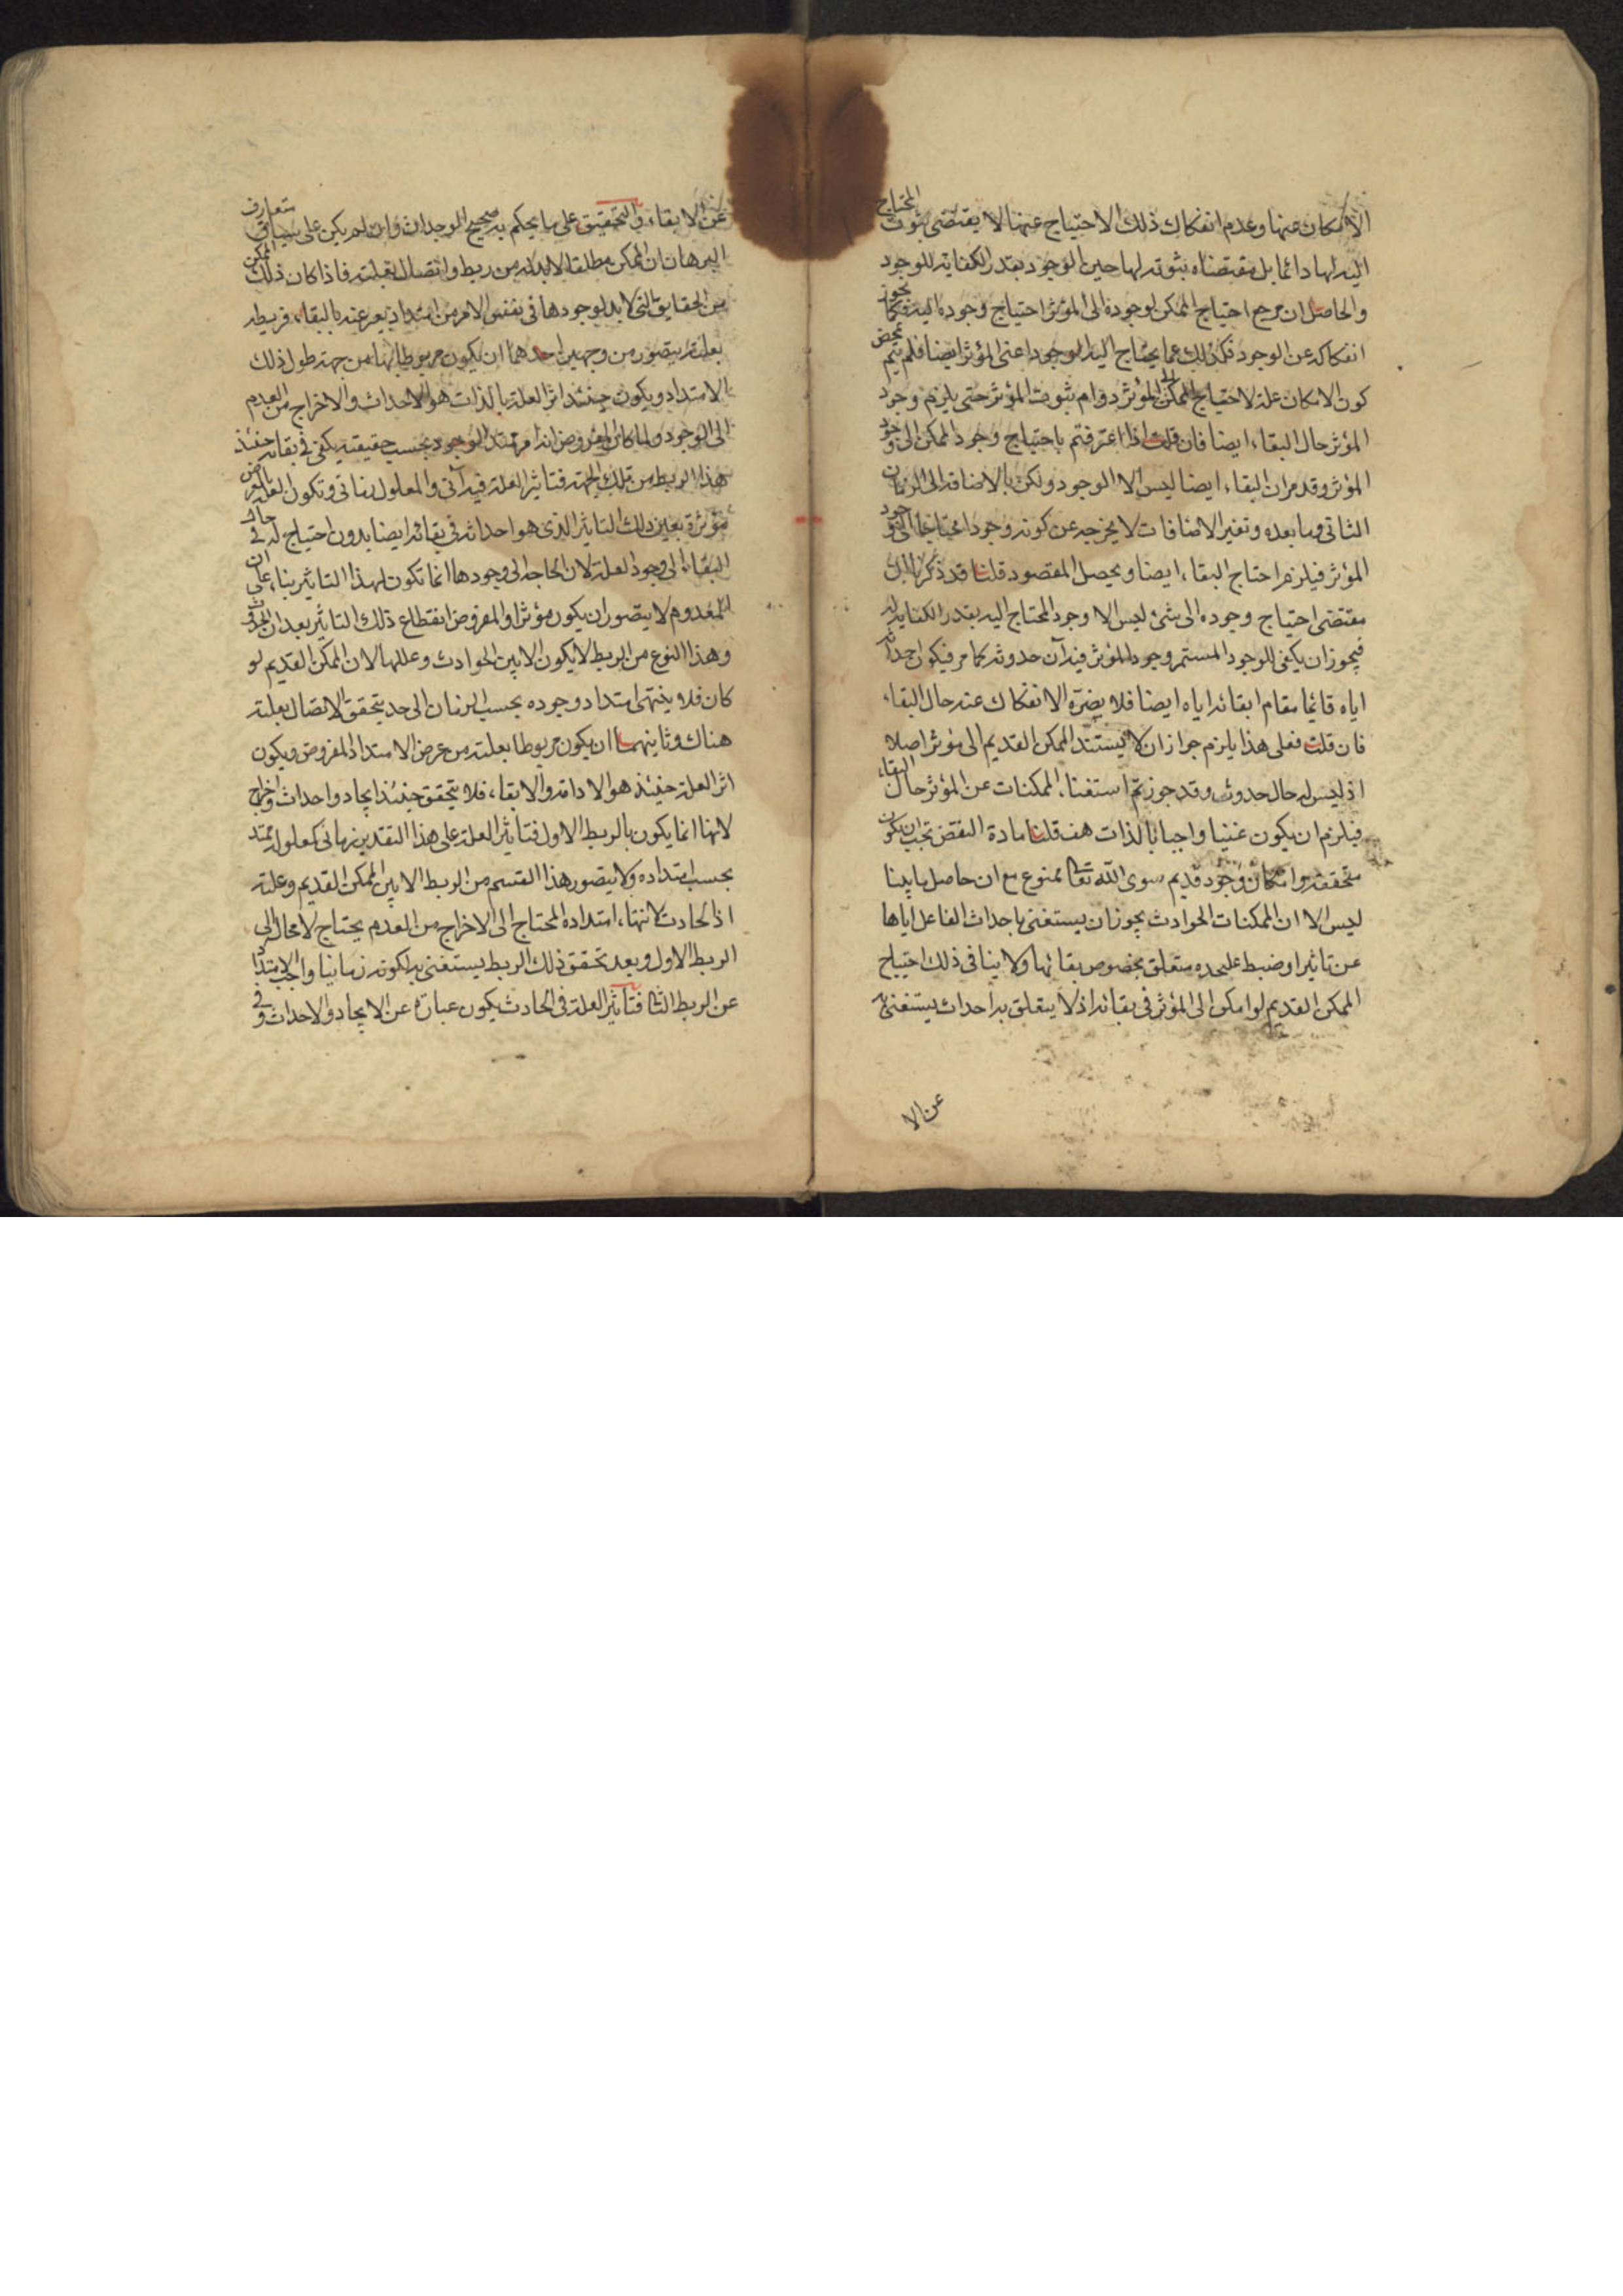 الامكان عنها وعدم انفكاك ذلك الاحتياج عنها لا يقتضى ثبوت المحتاج
اليه لها دائما بل مقتضاه ثبوته لها حين الوجود بقدر الكفاية للوجود
والحاصل ان مرجع احتياج الممكن لوجوده الى المؤثر احتياج وجوده اليه فكما يجوز
انفكاكه عن الوجود فكذلك عما يحتاج اليه الوجود اعنى المؤثر ايضا فلم يتم بمحض
كون الامكان علة لاحتياج الممكن الى المؤثر دوام ثبوت المؤثر حتى يلزم وجود
المؤثر حال البقاء ايضا فان قلت اذا اعترفتم باحتياج وجود الممكن الى وجود
المؤثر وقد مر ان البقاء ايضا ليس الا الوجود ولكن بالاضافة الى الزمان
الثانى وما بعده وتغير الاضافات لا يخرجه عن كونه وجودا محتاجا الى وجود
المؤثر فيلزم احتاج البقاء ايضا ويحصل المقصود قلنا قد ذكرنا ان
مقتضى احتياج وجوده الى شئ ليس الا وجود المحتاج اليه بقدر الكفاية له
فيجوز ان يكفى للوجود المستمر وجود المؤثر فيه آن حدوثه كما مر فيكون احداثه
اياه قائما مقام ابقائه اياه ايضا فلا يضره الانفكاك عنه حال البقاء
فان قلت فعلى هذا يلزم جواز ان لا يستند الممكن القديم الى مؤثر اصلا
اذ ليس له حال حدوث وقد جوزتم استغناء الممكنات عن المؤثر حال البقاء
فيلزم ان يكون غنيا واجبا بالذات هف قلنا مادة النقض تجب ان يكون
متحققة وامكان وجود قديم سوى الله تعالى ممنوع مع ان حاصل ما بينا
ليس الا ان الممكنات الحوادث يجوز ان يستغنى باحداث الفاعل اياها
عن تاثير او ضبط عليحده متعلق بخصوص بقائها ولا ينافى ذلك احتياج
الممكن القديم لو امكن الى المؤثر فى بقائه اذ لا يتعلق به احداث يستغنى به
عن الا
عن الابقاء والتحقيق على ما يحكم به صحيح الوجدان وان لم يكن على سياق متعارف
البرهان ان الممكن مطلقا لابد له من ربط واتصال بعلته فاذا كان ذلك الممكن
من الحقايق التى لابد لوجودها فى نفس الامر من امتداد يعبر عنه بالبقاء فربطه
بعلته يتصور من وجهين احدهما ان يكون مربوطا بها من جهة طول ذلك
الامتداد ويكون حينئذ اثر العلة بالذات هو الاحداث والاخراج من العدم
الى الوجود ولما كان المفروض انه امر ممتد الوجود بحسب حقيقته يكفى فى بقائه حينئذ
هذا الربط من تلك الجهة فتاثير العلة فيه آنى والمعلول زمانى وتكون العلة
مؤثرة بعين ذلك التاثير الذى هو احداثه فى بقائه ايضا بدون احتياج له فى حال
البقاء الى وجود العلة لان الحاجة الى وجودها انما تكون لهذا التاثير بناء على ان
المعدوم لا يتصور ان يكون مؤثرا والمفروض انقطاع ذلك التاثير بعد ان
وهذا النوع من الربط لا يكون الا بين الحوادث وعللها لان الممكن القديم لو
كان فلا ينتهى امتداد وجوده بحسب الزمان الى حد يتحقق الاتصال بعلته
هناك وثانيهما ان يكون مربوطا بعلته من عرض الامتداد المفروض ويكون
اثر العلة حينئذ هو الادامة والابقاء فلا يتحقق حينئذ ايجاد واحداث واخراج
لانها انما يكون بالربط الاول فتاثير العلة على هذا التقدير زمانى كمعلوله ممتد
بحسب امتداده ولا يتصور هذا القسم من الربط الا بين الممكن القديم وعلته
اذ الحادث لانتهاء امتداده المحتاج الى الاخراج من العدم يحتاج لا محالة الى
الربط الاول وبعد تحقق ذلك الربط يستغنى به لكونه زمانيا واجب الامتداد
عن الربط الثانى فتاثير العلة فى الحادث يكون عبارة عن الايجاد والاحداث وفى